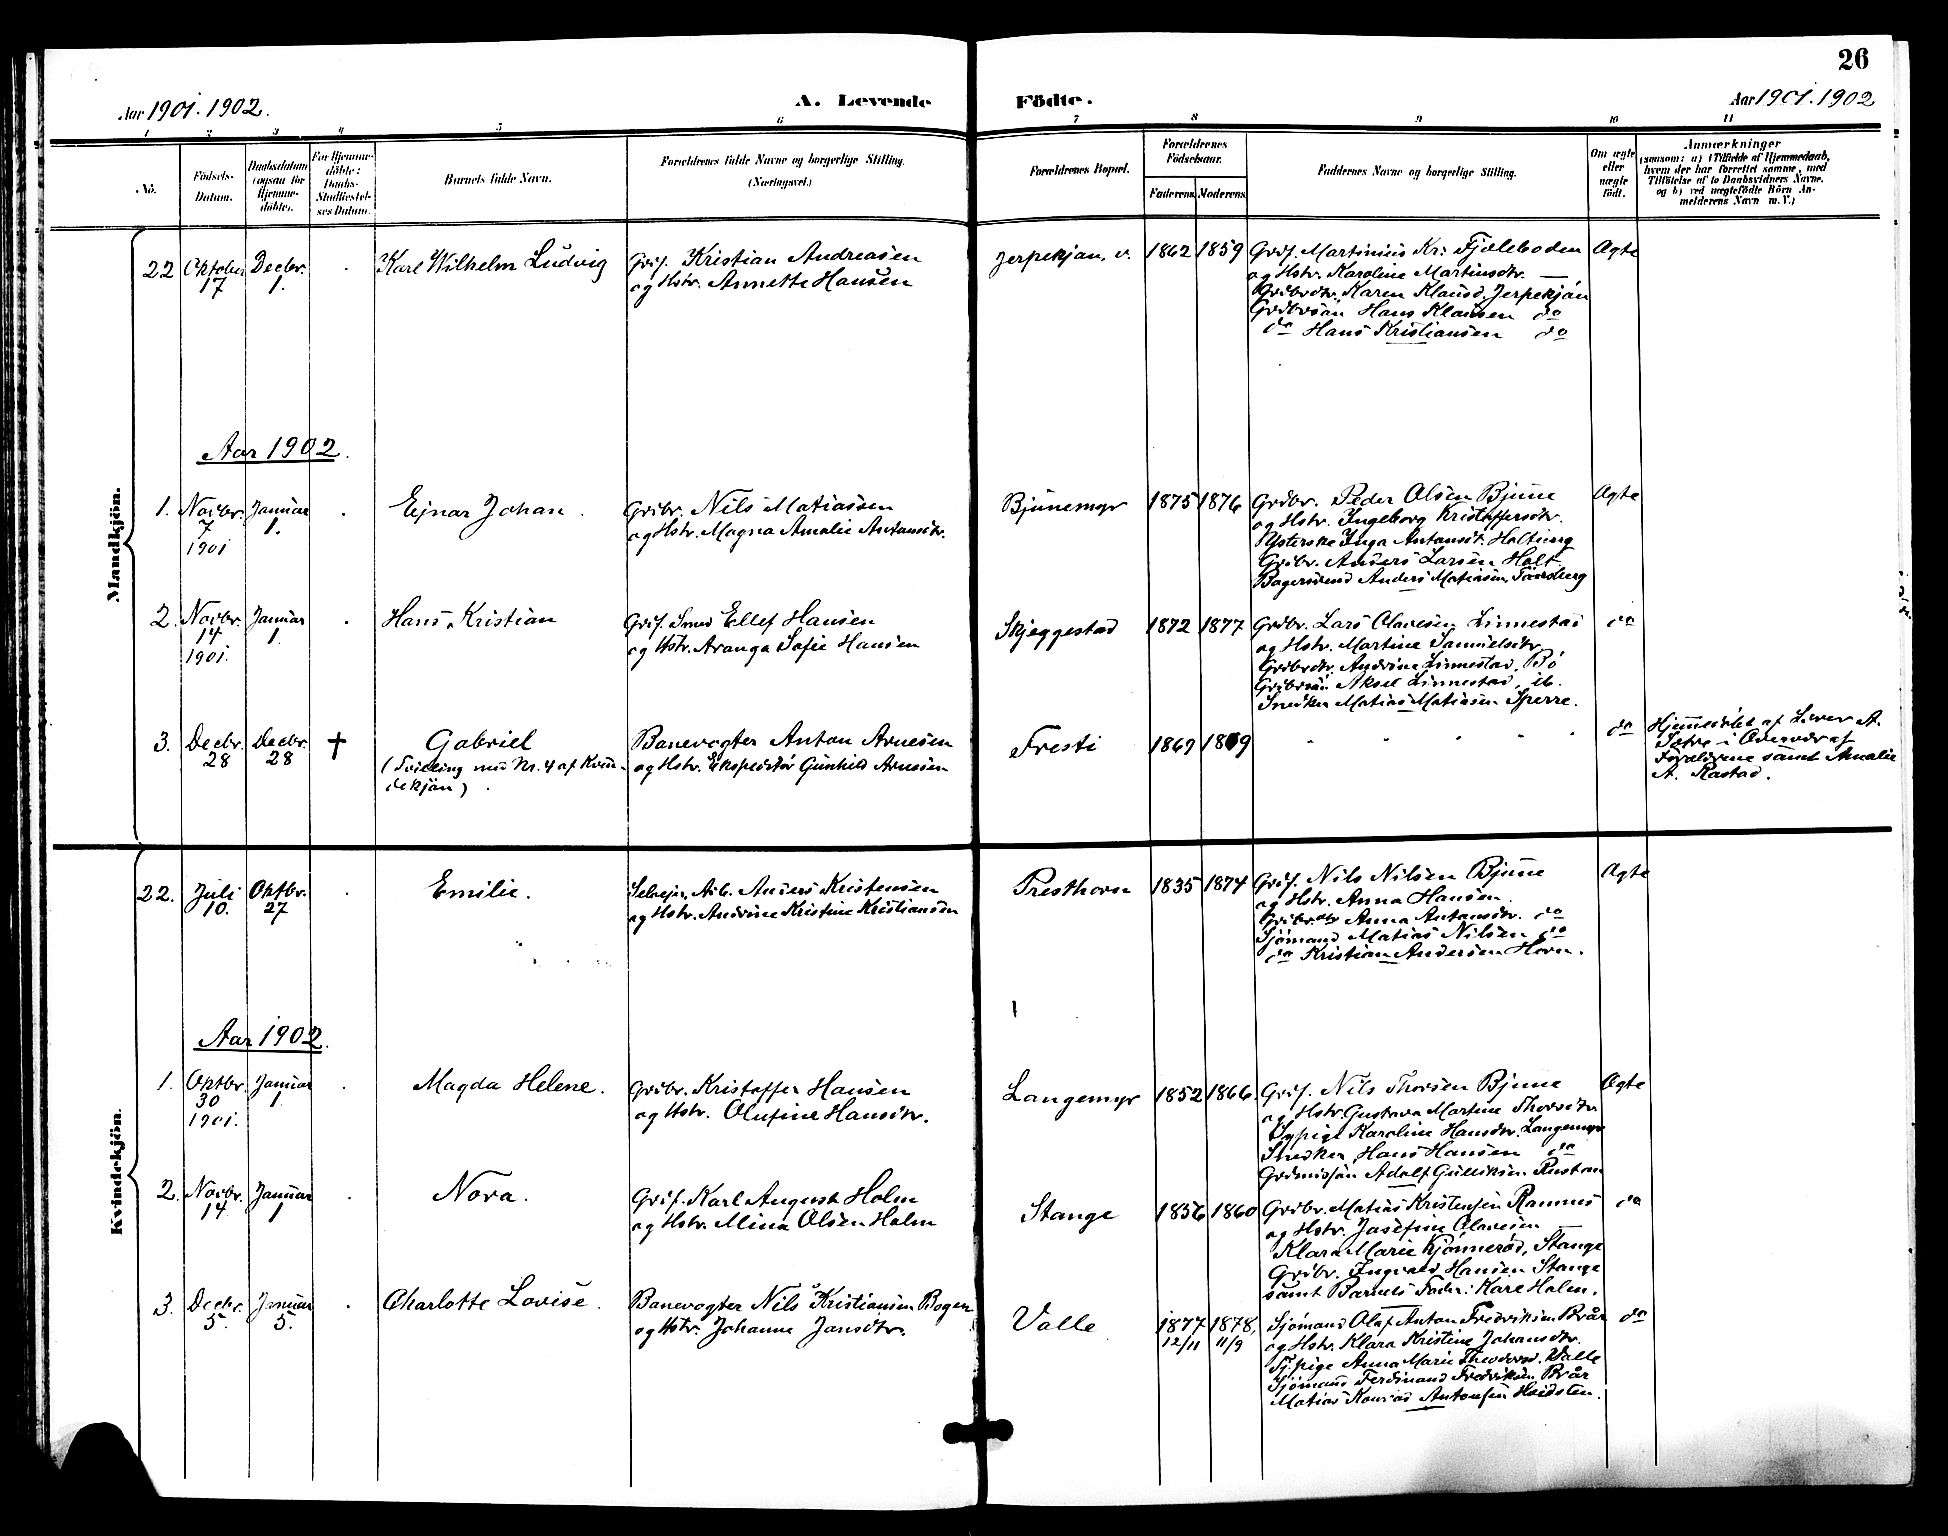 26
Aar 1901. 1902.
A. Levende
Födte.
Aar 1901. 1902
1 2 3 4 5 6 7 8 9 10 11
No.
Födsels-
Datum.
Daabsdatum
(ogsaa for
Hjemme-
döbte).
For Hjemme-
döbte:
Daabs-
Stadfæstel-
ses Datum.
Barnets fulde Navn.
Forældrenes fulde Navne og borgerlige Stilling.
(Næringsvei.)
Forældrenes Bopæl.
Forældrenes
Födselsaar.
Faderens Moderens
Faddernes Navne og borgerlige Stilling.
Om ægte
eller
uægte
födt.
Anmærkninger
(saasom: a) i Tilfælde af Hjemmedaab,
hvem der har forrettet samme, med
Tilföielse af to Daabsvidners Navne.
og b) ved uægtefödte Börn An-
melderens Navn m. V.)
Mandkjön.
22 Oktober 17 Decbr. 1. Karl Wilhelm Ludvig
Grif. Kristian Andreasen
og Hstr. Annette Hansen
Jerpekjøn, v. 1862 1859
Grif. Martinius Kr. Fjæleboden
og Hstr. Karoline Martinsdtr. —
Grdbrdtr. Karen Klausd. Jerpekjøn
Grdbrsøn Hans Klausen do
do Hans Kristiansen do
Ægte
Aar 1902.
1. Novbr. 7 1901 Januar 1. Ejnar Johan.
Grdbr. Nils Matiassen
og Hstr. Magna Amalie Antonsdtr.
Bjunemyr 1875 1876
Grdbr. Peder Olsen Bjune
og Hstr. Ingeborg Kristoffersdtr.
Inga Antonsdt.
Grdbr. Anders Larsen Holt
Anders Matiasen, Tønsberg
Ægte
2. Novbr. 14 1901. Januar 1. Hans Kristian
Grif. Smed Ellef Hansen
og Hstr. Aranga Sofie Hansen
Skjeggestad 1872 1877
Grdbr. Lars Olavesen Linnestad
og Hstr. Martine Samuelsdtr.
Grdbrdtr. Andrine Linnestad, Bø
Grdbrsøn Aksel Linnestad, ib.
Snedker Matias Matiasen Sperre.
do
3. Decbr. 28 Decbr. 28 † Gabriel
(Tvilling med Nr. 4 af Kvin-
dekjøn).
Banevogter Anton Arnesen
og Hstr. Ekspeditør Gunhild Arnesen
Fresti 1869 1869
do
Hjemmedøbt af Lærer A.
Sætre i Overvær af
Forældrene samt Amalie
A. Rastad.
Kvindekjön.
22. Juli 10. Oktbr. 27 Emilie.
Selvejer, Arb. Anders Kristensen
og Hstr. Andrine Kristine Kristiansen
Presthorn 1835 1874
Grif. Nils Nilsen Bjune
og Hstr. Anna Hansen.
Grdbrdtr Anna Antonsdtr. do
Sjømand Matias Nilsen do
do Kristian Andersen Horn.
Ægte
Aar 1902.
1. Oktbr. 30 1901. Januar 1. Magda Helene.
Grdbr. Kristoffer Hansen
og Hstr. Olufine Hansdtr.
Langemyr 1852 1866.
Grif. Nils Thorsen Bjune
og Hstr. Gustava Martine Thorsdtr
Sypige Karoline Hansdtr. Langemyr
Snedker, Hans Hansen do
Grdmdsøn Adolf Gulliksen Rustan
Ægte
2. Novbr. 14 Januar 1 Nora.
Grif. Karl August Holm
og Hstr. Mina Olsen Holm
Stange 1856 1860
Grdbr. Matias Kristensen Ramnes
og Hstr. Josefine Olavesen —
Klara Marie Kjønnerød, Stange
Grdbr. Ingvald Hansen Stange
samt Barnets Fader: Karl Holm.
do
3. Decbr. 5. Januar 5. Charlotte Lovise.
Banevogter Nils Kristiansen Bogen
og Hstr. Johanne Jansdtr.
Valle 1877 12/11 1878, 11/9
Sjømand Olaf Anton Fredriksen Brår
og Hstr. Klara Kristine Johansdtr.
Tj.pige Anna Marie Theodorsd. Valle
Sjømand Ferdinand Fredriksen Brår
Matias Konrad Antonsen Heidsten.
do